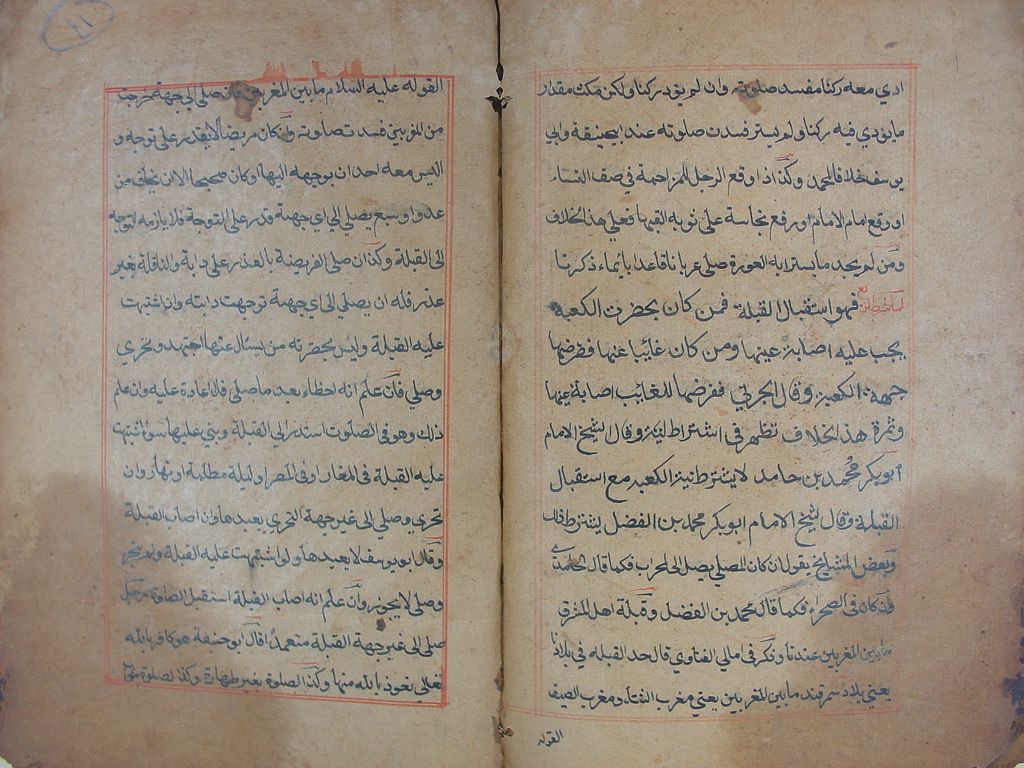 ادي معه ركنا مفسد صلوته وان لم يؤد ركنا ولكن مكث مقدار
ما يؤدي فيه ركنا ولم يستر فسدت صلوته عند ابيحنيفة وابي
يوسف خلافا لمحمد وكذا اذا وقع الرجل للمزاحمة في صف النساء
او وقع امام الامام او رفع نجاسة على ثوبه القيها فعلى هذا الخلاف
ومن لم يجد ما يستر به العورة صلى عريانا قاعدا بايماء ذكرنا
فهو استقبال القبلة فمن كان بحضرت الكعبة
يجب عليه اصابة عينها ومن كان غائبا عنها ففرضها
جهة الكعبة وقال الجرجاني ففرضها للغائب اصابة عينها
وثمرة هذا الخلاف تظهر في اشتراط النية وقال الشيخ الامام
ابو بكر محمد بن حامد لا يشترط نية الكعبه مع استقبال
القبلة وقال الشيخ الامام ابو بكر محمد بن الفضل يشترط ذلك
وبعض المشايخ يقول ان كان المصلي يصلي الى المحراب فكما قال الحامدي
وان كان في الصحراء فكما قال محمد بن الفضل وقبلة اهل المشرق
ما بين المغربين عندنا وذكر في امالي الفتاوى قال حد القبله في بلادنا
يعني بلاد سمرقند ما بين المغربين يعني مغرب الشتاء ومغرب الصيف
القوله
٤١
القوله عليه السلام ما بين المغربين فان صلى الى جهة خرجت
من المغربين فسدت صلوته وان كان مريضا لا يقدر على توجه و
اليس معه احد ان يوجهه اليها او كان صحيحا الا ان يخاف من
عدو او سبع يصلي الى اي جهة قدر على التوجه فلا يلزمه التوجه
الى القبلة وكذا ان صلى الفريضة بالعذر على دابة والنافلة بغير
عذر فله ان يصلي الى اي جهة توجهت دابته وان اشتبهت
عليه القبلة وليس بحضرته من يسئال عنها اجتهد وتحرى
وصلى فان علم انه اخطاء بعد ما صلى فلا اعادة عليه وان علم
ذلك وهو في الصلوت استدار الى القبلة وبنى عليها سواء اشتبهت
عليه القبلة في المغاز او في المصر او ليلة مظلمة او نهار وان
تحرى وصلى الى غير جهة التحرى يعيدها وان اصاب القبلة
وقال بو يوسف لا يعيدها ولو اشتبهت عليه القبلة ولم يتحر
وصلى لا يجوز وان علم انه اصاب القبلة استقبل الصلوة رجل
صلى الى غير جهة القبلة متعمدا قال ابو حنيفة هو كافر بالله
تعالى نعوذ بالله منها وكذا الصلوة بغير طهارة وكذا الصلوة